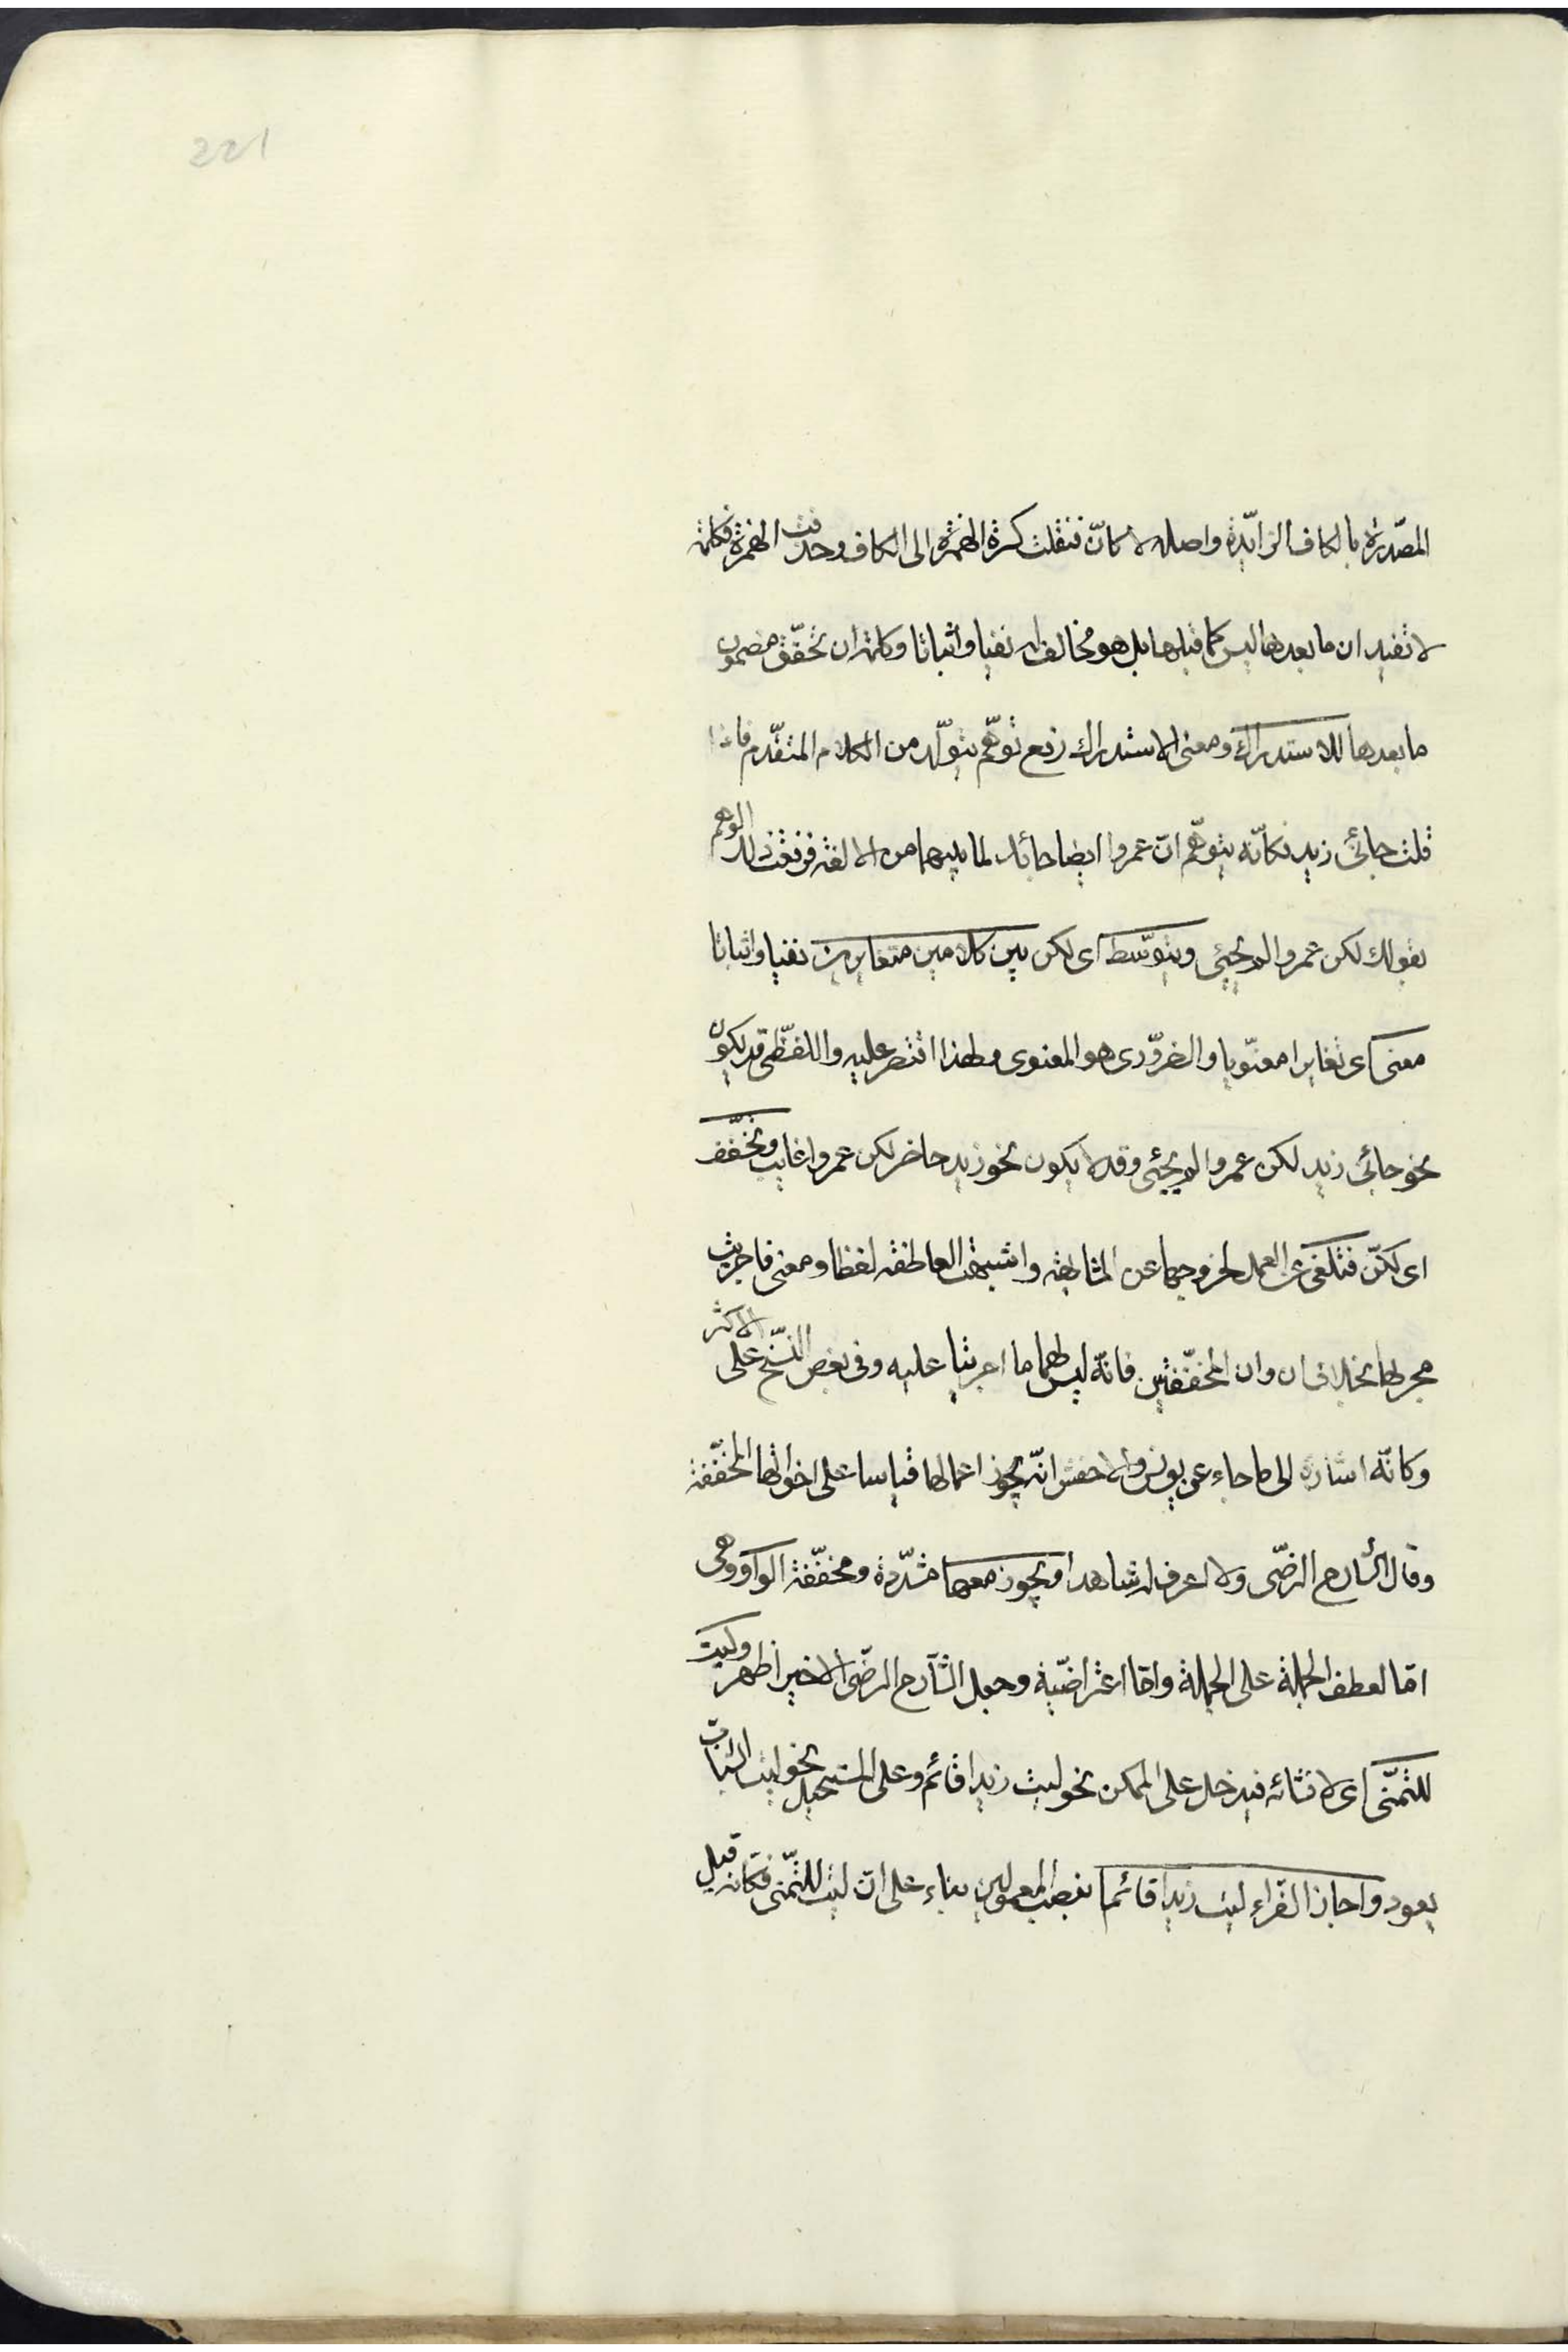 221
المصّدرة بالكاف الزائدة واصله لا كانّ فنقلت كسرة الهمزة الى الكاف وحذفت الهمزة فكلمة
لا تفيد ان ما بعدها ليس كما قبلها بل هو مخالف له نفيا واثباتا وكلمة ان تحقّق مضمون
ما بعدها للاستدراك ومعنى الاستدراك رفع توهّم يتولّد من الكلام المتقدّم فاذا
قلت جائنى زيد فكانّه يتوهّم انّ عمروا ايضا جائك لما بينهما من الالفة فرفعت ذلك الوهم
بقولك لكن عمروا لم يجئى ويتوسّط اى لكن بين كلامين متغايرين نفيا واثباتا
معنى اى تغايرا معنّويا والضرّورى هو المعنوى ولهذا اقتصر عليه واللفظّى قد يكون
نحو جائنى زيد لكن عمروا لم يجئى وقد لا يكون نحو زيد حاضر لكن عمروا غايب وتخفّف
اى لكنّ فتلغى عن العمل لخروجها عن المشابهة واشبهت العاطفة لفظا ومعنى فاجريت
مجريها بخلاف ان وان المخفّفتين فانّه ليس لهما ما اجريتا عليه وفى بعض النسّخ على الاكثر
وكانّه اشارة الى ما جاء عن يونس والاخفش انّه يجوز اعمالها قياسا على اخواتها المخفّفة
وقال الشارح الرضّى ولا اعرف له شاهدا ويجوز معها مشدّدة ومخفّفة الواو وهى
امّا لعطف الجملة على الجملة وامّا اعتراضيّة وجعل الشّارح الرضّى الاخير اظهر وليت
للتمنّى اى لانشائه فيدخل على الممكن نحو ليت زيدا قائم وعلى المستحيل نحو ليت الشباب
يعود واجاز الفرّاء ليت زيدا قائما بنصب المعمولين بناء على انّ ليت للتّمنى فكانه قيل